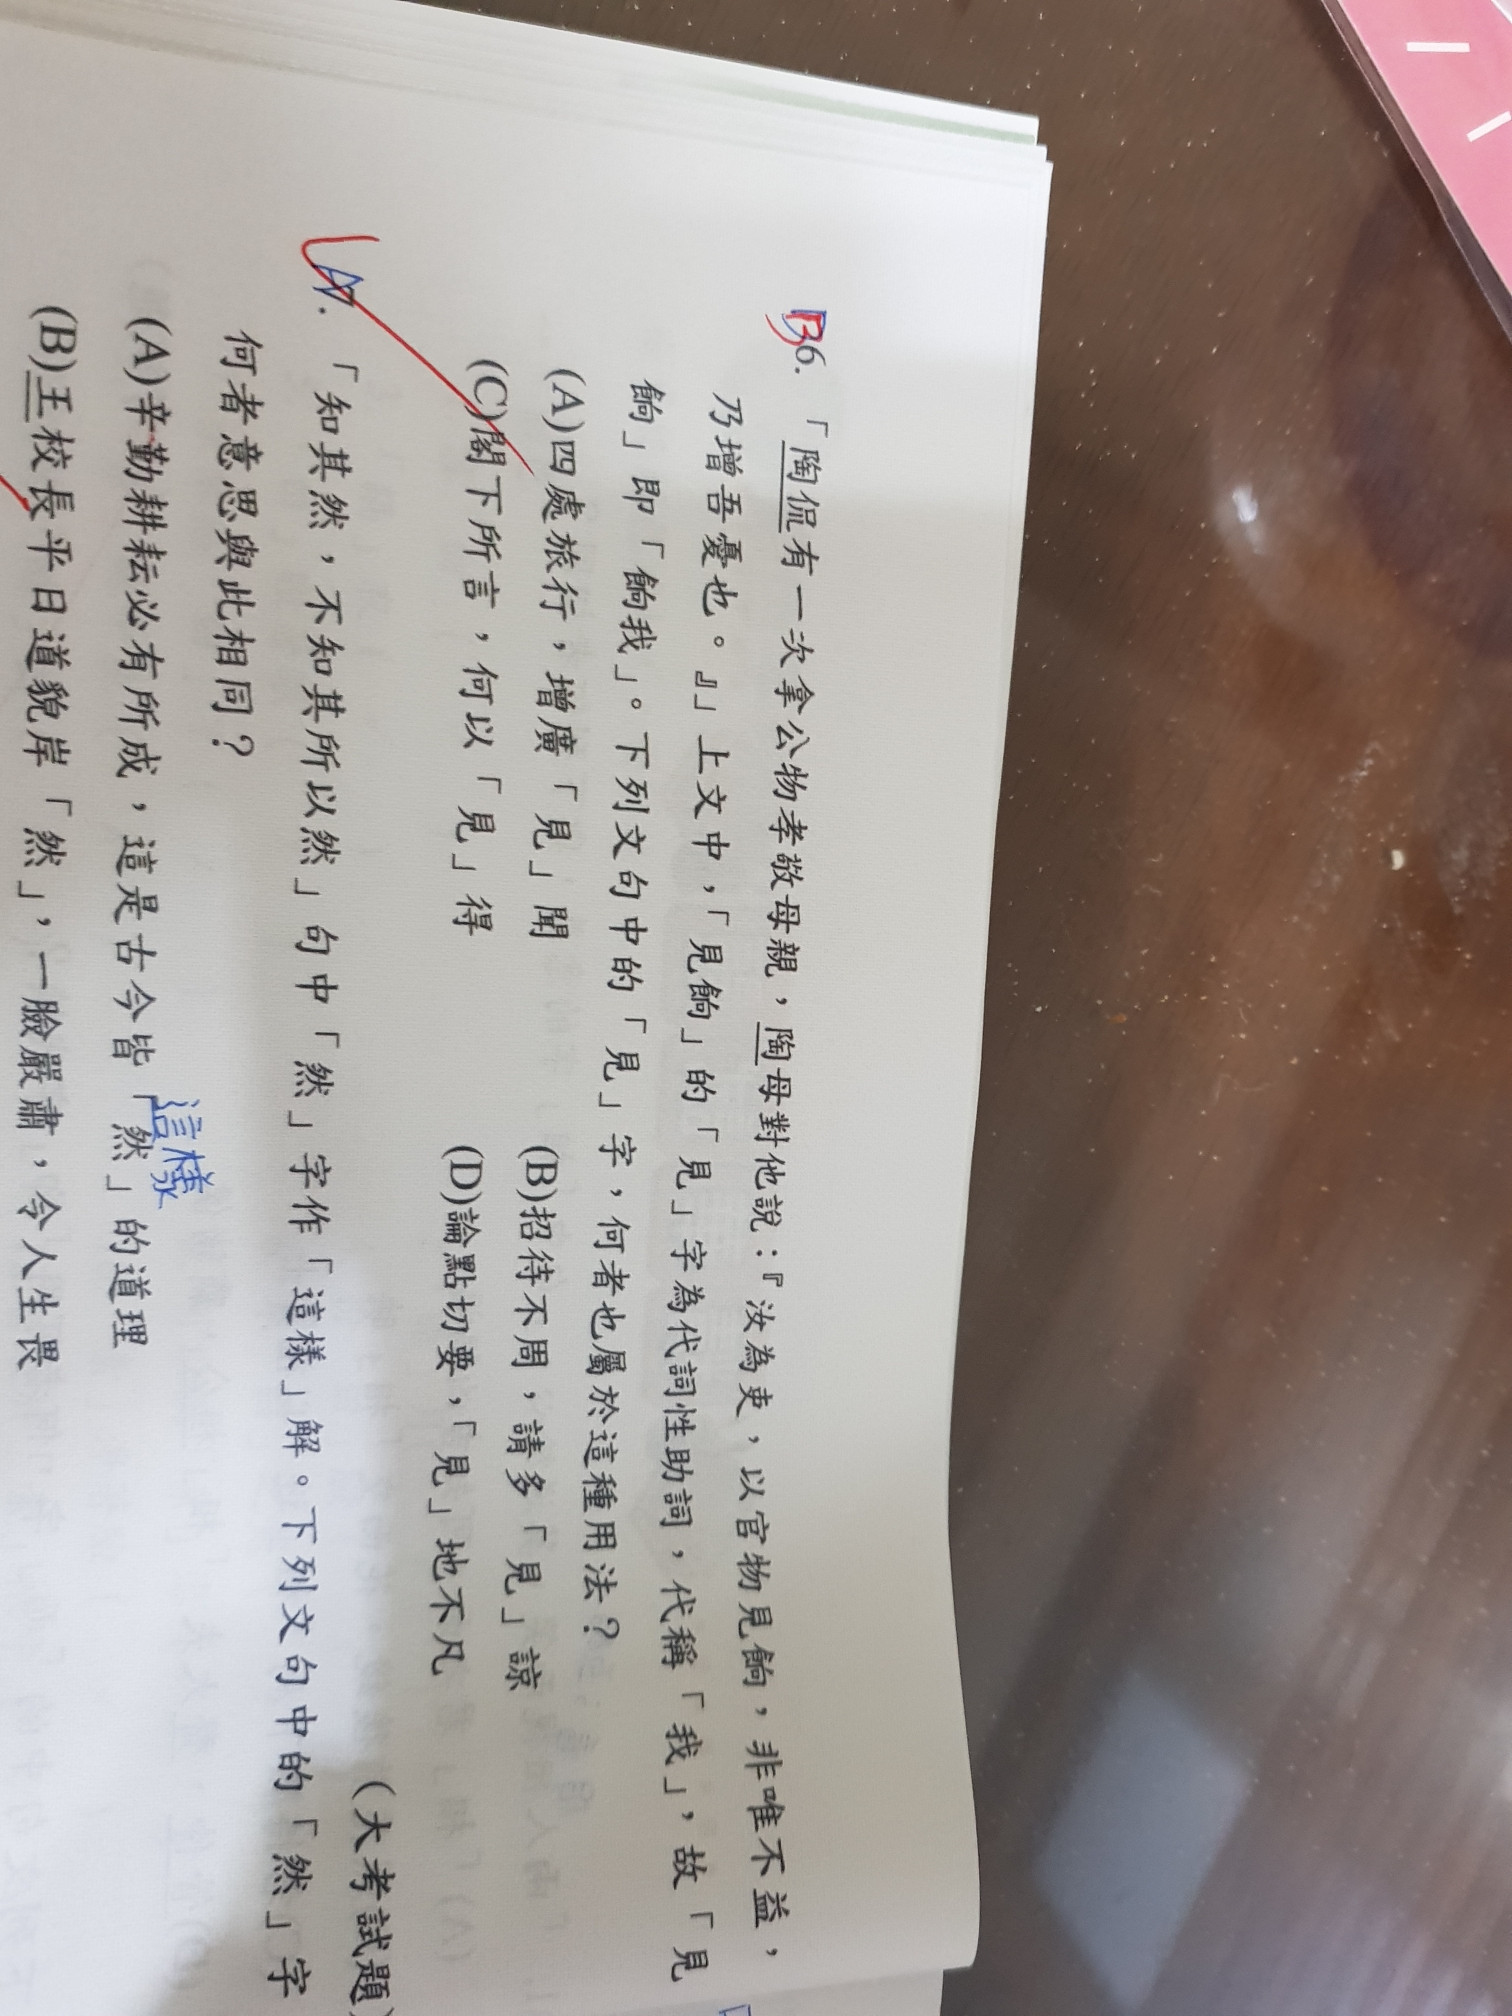 B6. 「陶侃有一次拿公物孝敬母親，陶母對他說：『汝為吏，以官物見餉，非唯不益，
乃增吾憂也。』」上文中，「見餉」的「見」字為代詞性助詞，代稱「我」，故「見
餉」即「餉我」。下列文句中的「見」字，何者也屬於這種用法？
(A)四處旅行，增廣「見」聞　(B)招待不周，請多「見」諒
(C)閣下所言，何以「見」得　(D)論點切要，「見」地不凡
（大考試題）
A7. 「知其然，不知其所以然」句中「然」字作「這樣」解。下列文句中的「然」字
何者意思與此相同？
這樣
(A)辛勤耕耘必有所成，這是古今皆「然」的道理
(B)王校長平日道貌岸「然」，一臉嚴肅，令人生畏